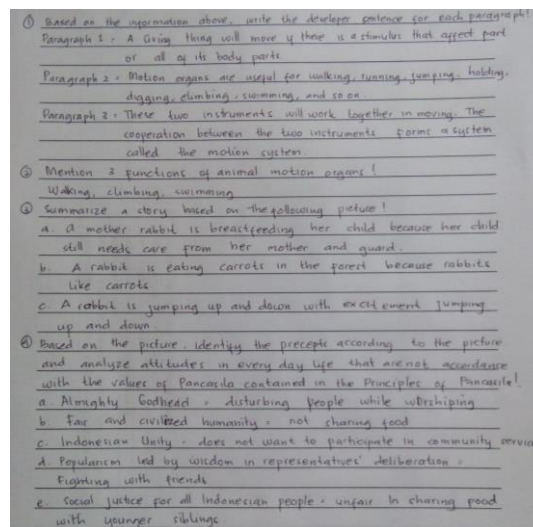 ① Based on the information above, write the developer sentence for each paragraph!
Paragraph 1 = A living thing will move if there is a stimulus that affect part
or all of its body parts.
Paragraph 2 = Motion organs are useful for walking, running, jumping, holding,
digging, climbing, swimming, and so on.
Paragraph 3 = These two instruments will work together in moving. The
cooperation between the two instruments forms a system
called the motion system.
② Mention 3 functions of animal motion organs!
Walking, climbing, swimming
③ Summarize a story based on the following picture!
a. A mother rabbit is breastfeeding her child because her child
still needs care from her mother and guard.
b. A rabbit is eating carrots in the forest because rabbits
like carrots
c. A rabbit is jumping up and down with excitement jumping
up and down.
④ Based on the picture, identify the precepts according to the picture
and analyze attitudes in every day life that are not accordance
with the values of Pancasila contained in the Principles of Pancasila!
a. Almighty Godhead = disturbing people while worshiping
b. Fair and civilized humanity = not sharing food
c. Indonesian Unity = does not want to participate in community service
d. Populanism led by wisdom in representatives' deliberation =
Fighting with friends
e. Social justice for all Indonesian people = unfair In sharing food
with younger siblings